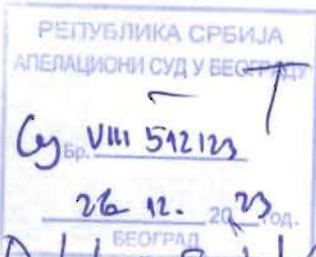 РЕПУБЛИКА СРБИЈА
АПЕЛАЦИОНИ СУД У БЕОГРАДУ
Су Бр. VIII 512/23
26. 12. 2023 год.
БЕОГРАД